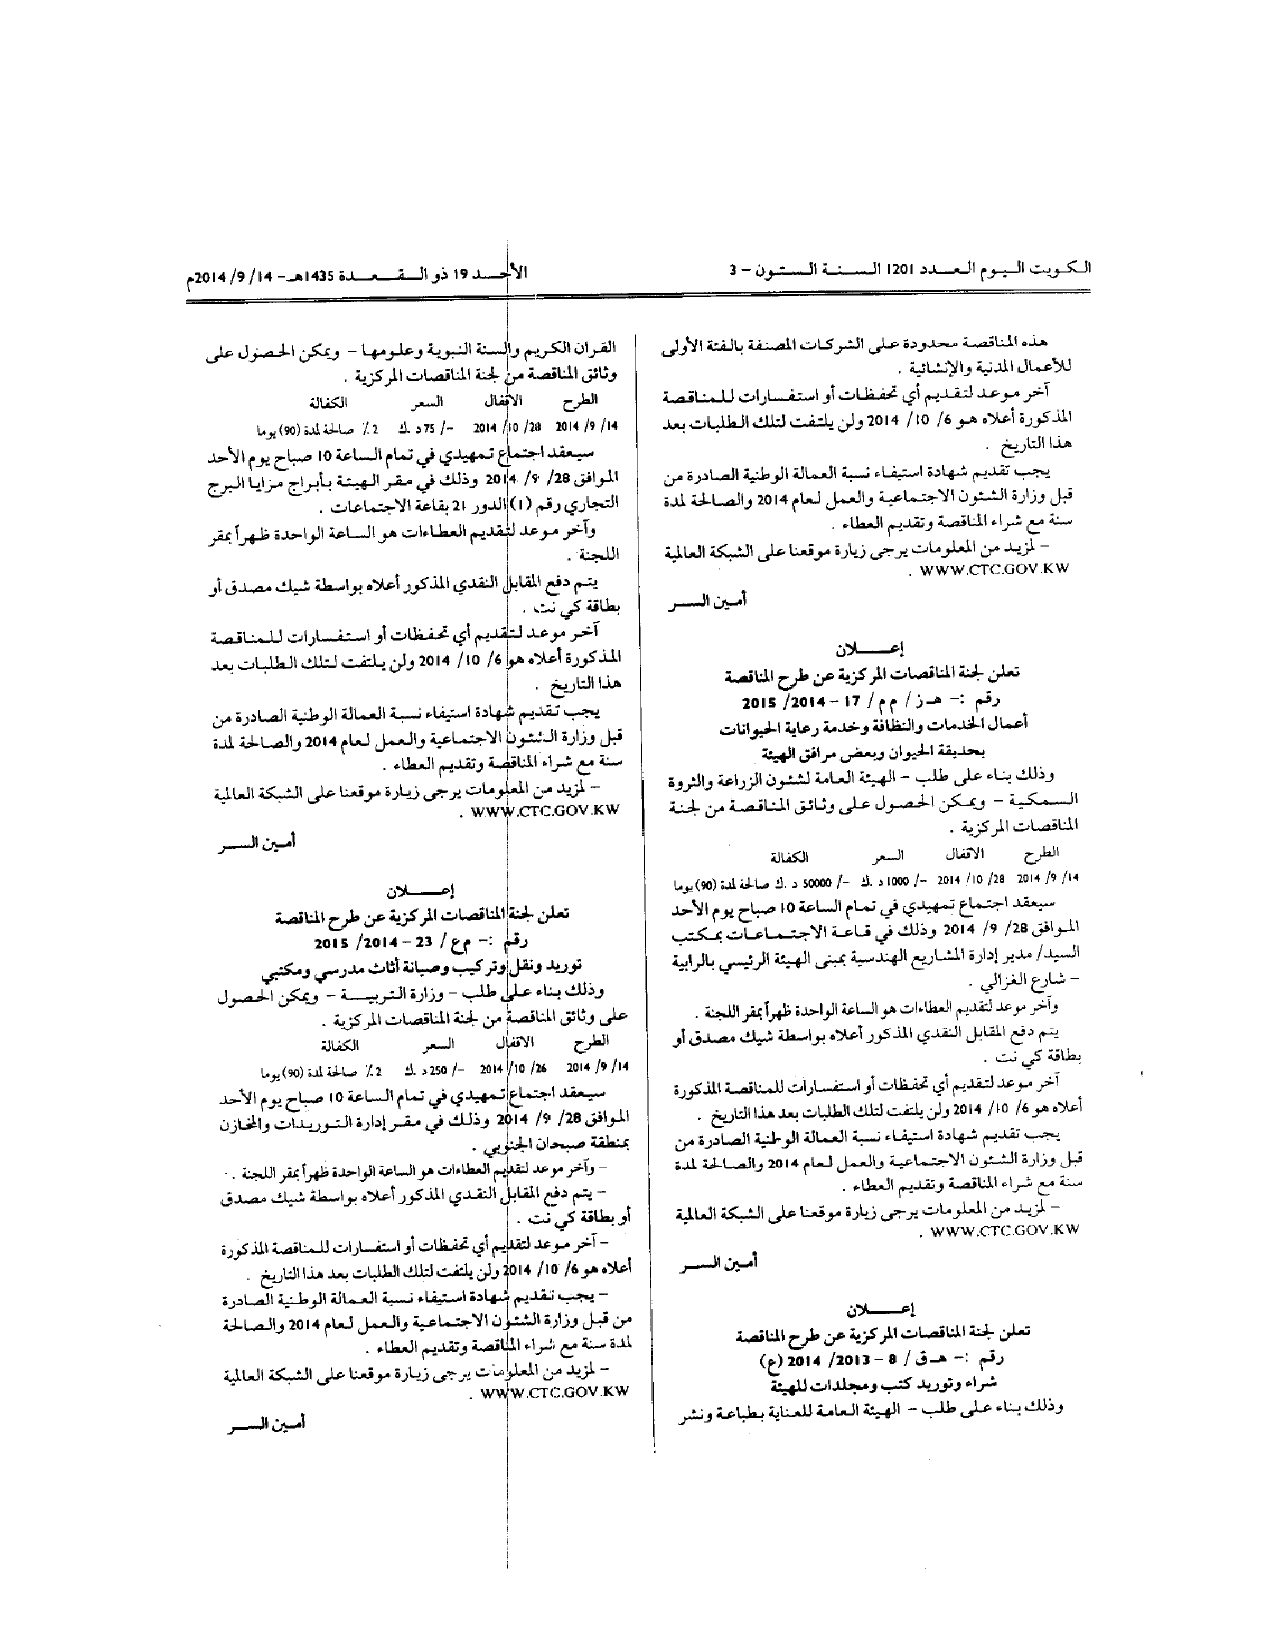 الكويت اليوم العدد 1201 السنة الستون – 3
الأحد 19 ذو القعدة 1435هـ – 14/ 9/ 2014م
هذه المناقصة محدودة على الشركات المصنفة بالفئة الأولى
للأعمال المدنية والإنشائية .
آخر موعد لتقديم أي تحفظات أو استفسارات للمناقصة
المذكورة أعلاه هو 6/ 10/ 2014 ولن يلتفت لتلك الطلبات بعد
هذا التاريخ .
يجب تقديم شهادة استيفاء نسبة العمالة الوطنية الصادرة من
قبل وزارة الشئون الاجتماعية والعمل لعام 2014 والصالحة لمدة
سنة مع شراء المناقصة وتقديم العطاء .
– لمزيد من المعلومات يرجى زيارة موقعنا على الشبكة العالمية
WWW.CTC.GOV.KW .
أمين السر
إعلان
تعلن لجنة المناقصات المركزية عن طرح المناقصة
رقم :– هـ ز/ م م/ 17 – 2014/ 2015
أعمال الخدمات والنظافة وخدمة رعاية الحيوانات
بحديقة الحيوان وبعض مرافق الهيئة
وذلك بناء على طلب – الهيئة العامة لشئون الزراعة والثروة
السمكية – ويمكن الحصول على وثائق المناقصة من لجنة
المناقصات المركزية .
الطرح الاقفال السعر الكفالة
14/ 9/ 2014 28/ 10/ 2014 –/ 1000 د.ك –/ 50000 د.ك صالحة لمدة (90) يوما
سيعقد اجتماع تمهيدي في تمام الساعة 10 صباح يوم الأحد
الموافق 28/ 9/ 2014 وذلك في قاعة الاجتماعات بمكتب
السيد/ مدير إدارة المشاريع الهندسية بمبنى الهيئة الرئيسي بالرابية
– شارع الغزالي .
وآخر موعد لتقديم العطاءات هو الساعة الواحدة ظهراً بمقر اللجنة .
يتم دفع المقابل النقدي المذكور أعلاه بواسطة شيك مصدق أو
بطاقة كي نت .
آخر موعد لتقديم أي تحفظات أو استفسارات للمناقصة المذكورة
أعلاه هو 6/ 10/ 2014 ولن يلتفت لتلك الطلبات بعد هذا التاريخ .
يجب تقديم شهادة استيفاء نسبة العمالة الوطنية الصادرة من
قبل وزارة الشئون الاجتماعية والعمل لعام 2014 والصالحة لمدة
سنة مع شراء المناقصة وتقديم العطاء .
– لمزيد من المعلومات يرجى زيارة موقعنا على الشبكة العالمية
WWW.CTC.GOV.KW .
أمين السر
إعلان
تعلن لجنة المناقصات المركزية عن طرح المناقصة
رقم :– هـ ق/ 8 – 2013/ 2014 (ع)
شراء وتوريد كتب ومجلدات للهيئة
وذلك بناء على طلب – الهيئة العامة للعناية بطباعة ونشر
القران الكريم والسنة النبوية وعلومها – ويمكن الحصول على
وثائق المناقصة من لجنة المناقصات المركزية .
الطرح الاقفال السعر الكفالة
14/ 9/ 2014 28/ 10/ 2014 –/ 75 د.ك 2٪ صالحة لمدة (90) يوما
سيعقد اجتماع تمهيدي في تمام الساعة 10 صباح يوم الأحد
الموافق 28/ 9/ 2014 وذلك في مقر الهيئة بأبراج مزايا البرج
التجاري رقم (1) الدور 21 بقاعة الاجتماعات .
وآخر موعد لتقديم العطاءات هو الساعة الواحدة ظهراً بمقر
اللجنة .
يتم دفع المقابل النقدي المذكور أعلاه بواسطة شيك مصدق أو
بطاقة كي نت .
آخر موعد لتقديم أي تحفظات أو استفسارات للمناقصة
المذكورة أعلاه هو 6/ 10/ 2014 ولن يلتفت لتلك الطلبات بعد
هذا التاريخ .
يجب تقديم شهادة استيفاء نسبة العمالة الوطنية الصادرة من
قبل وزارة الشئون الاجتماعية والعمل لعام 2014 والصالحة لمدة
سنة مع شراء المناقصة وتقديم العطاء .
– لمزيد من المعلومات يرجى زيارة موقعنا على الشبكة العالمية
WWW.CTC.GOV.KW .
أمين السر
إعلان
تعلن لجنة المناقصات المركزية عن طرح المناقصة
رقم :– م ع/ 23 – 2014/ 2015
توريد ونقل وتركيب وصيانة أثاث مدرسي ومكتبي
وذلك بناء على طلب – وزارة التربية – ويمكن الحصول
على وثائق المناقصة من لجنة المناقصات المركزية .
الطرح الاقفال السعر الكفالة
14/ 9/ 2014 26/ 10/ 2014 –/ 250 د.ك 2٪ صالحة لمدة (90) يوما
سيعقد اجتماع تمهيدي في تمام الساعة 10 صباح يوم الأحد
الموافق 28/ 9/ 2014 وذلك في مقر إدارة التوريدات والمخازن
بمنطقة صبحان الجنوبي .
– وآخر موعد لتقديم العطاءات هو الساعة الواحدة ظهراً بمقر اللجنة .
– يتم دفع المقابل النقدي المذكور أعلاه بواسطة شيك مصدق
أو بطاقة كي نت .
– آخر موعد لتقديم أي تحفظات أو استفسارات للمناقصة المذكورة
أعلاه هو 6/ 10/ 2014 ولن يلتفت لتلك الطلبات بعد هذا التاريخ .
– يجب تقديم شهادة استيفاء نسبة العمالة الوطنية الصادرة
من قبل وزارة الشئون الاجتماعية والعمل لعام 2014 والصالحة
لمدة سنة مع شراء المناقصة وتقديم العطاء .
– لمزيد من المعلومات يرجى زيارة موقعنا على الشبكة العالمية
WWW.CTC.GOV.KW .
أمين السر